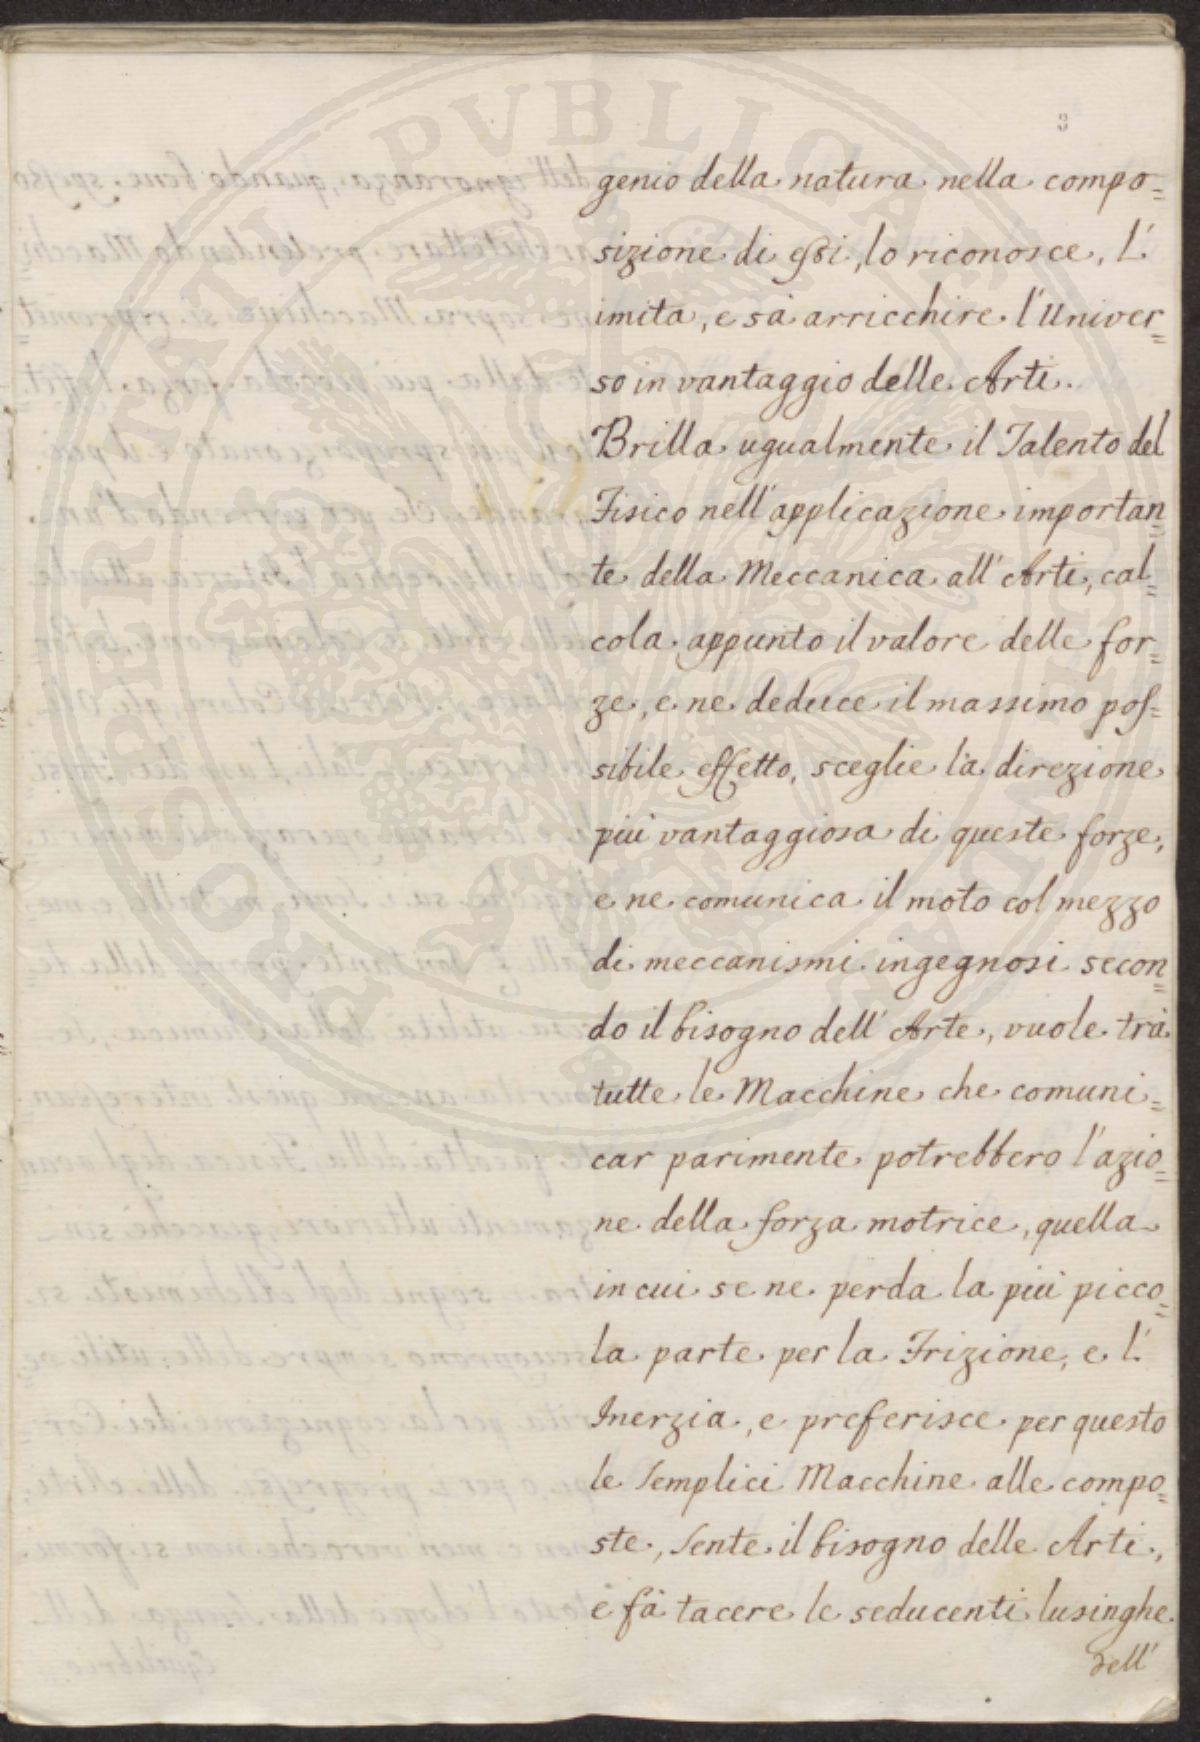 3
genio della natura nella compo=
sizione di essi, lo riconosce, l'
imita, e sà arricchire l'Univer=
so in vantaggio delle Arti.
Brilla ugualmente il Talento del
Fisico nell'applicazione importan=
te della Meccanica all'Arti, cal=
cola appunto il valore delle for=
ze, e ne deduce il massimo pos=
sibile effetto, sceglie la direzione
più vantaggiosa di queste forze,
e ne comunica il moto col mezzo
di meccanismi ingegnosi secon=
do il bisogno dell'Arte, vuole trà
tutte le Macchine che comuni=
car parimente potrebbero l'azio=
ne della forza motrice, quella
in cui se ne perda la più picco=
la parte per la Frizione, e l'
Inerzia, e preferisce per questo
le Semplici Macchine alle compo=
ste, Sente il bisogno delle Arti,
e fà tacere le seducenti lusinghe
dell'
PROSPERITATI PUBLICAE AUGENDAE